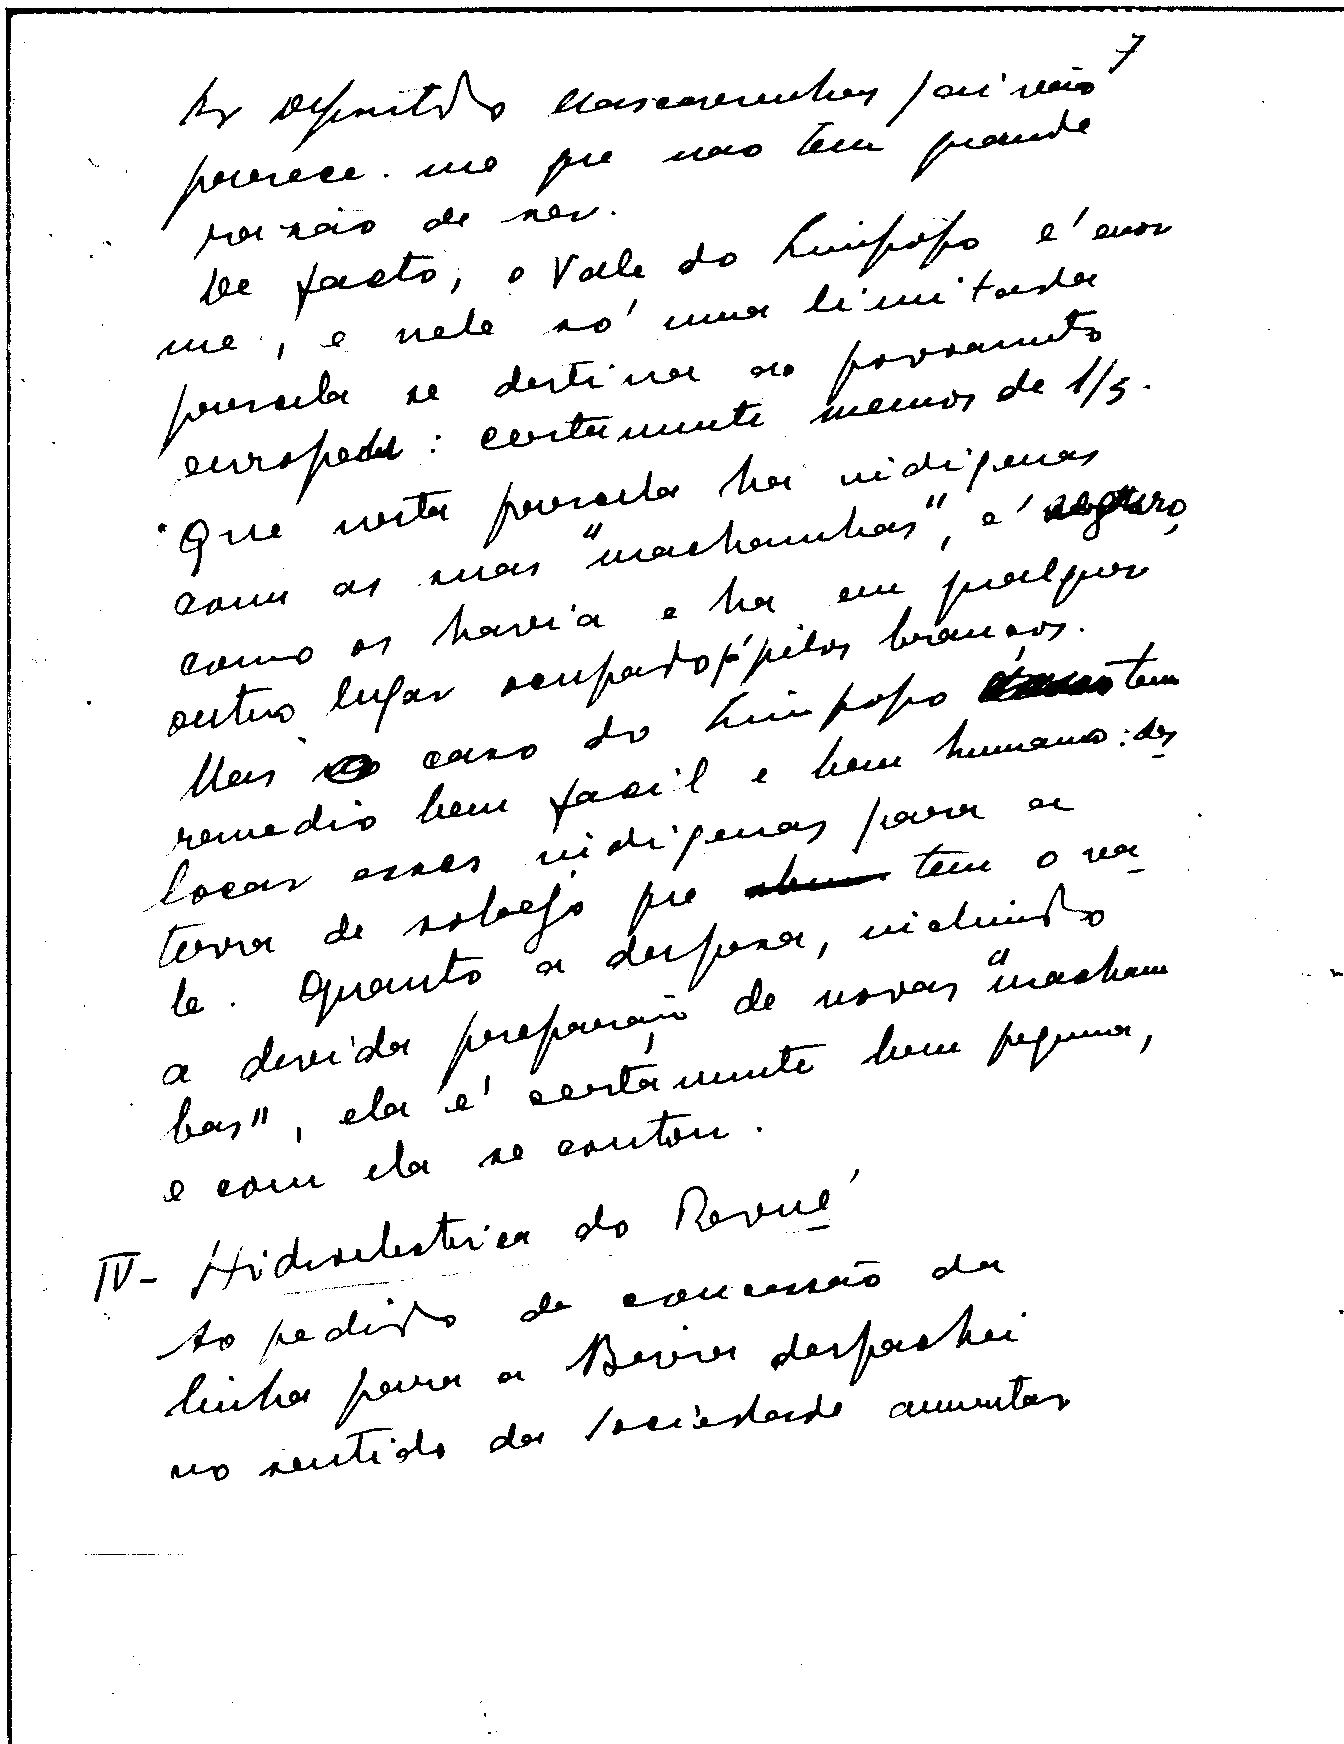 7
Dr Deputado Mascarenhas Gaivão
parece-me que não tem grande
razão de ser.
De facto, o Vale do Limpopo é enor
me, e nele só uma limitada
parcela se destina ao povoamento
europeu: certamente menos de 1/3.
Que nesta parcela ha indigenas
com as suas "machambas", é seguro,
como os havia e ha em qualquer
outro lugar ocupado pelos brancos.
Mas o caso do Limpopo tem
remedio bem facil e bem humano: des
locar esses indigenas para a
terra de sobejo que tem o va
le. Quanto a despesa, incluindo
a devida preparação de novas "macham
bas", ela é certamente bem pequena,
e com ela se contou.
IV - Hidroelectrica do Revué
Ao pedido de concessão da
linha para a Beira despachei
no sentido da Sociedade aumentar